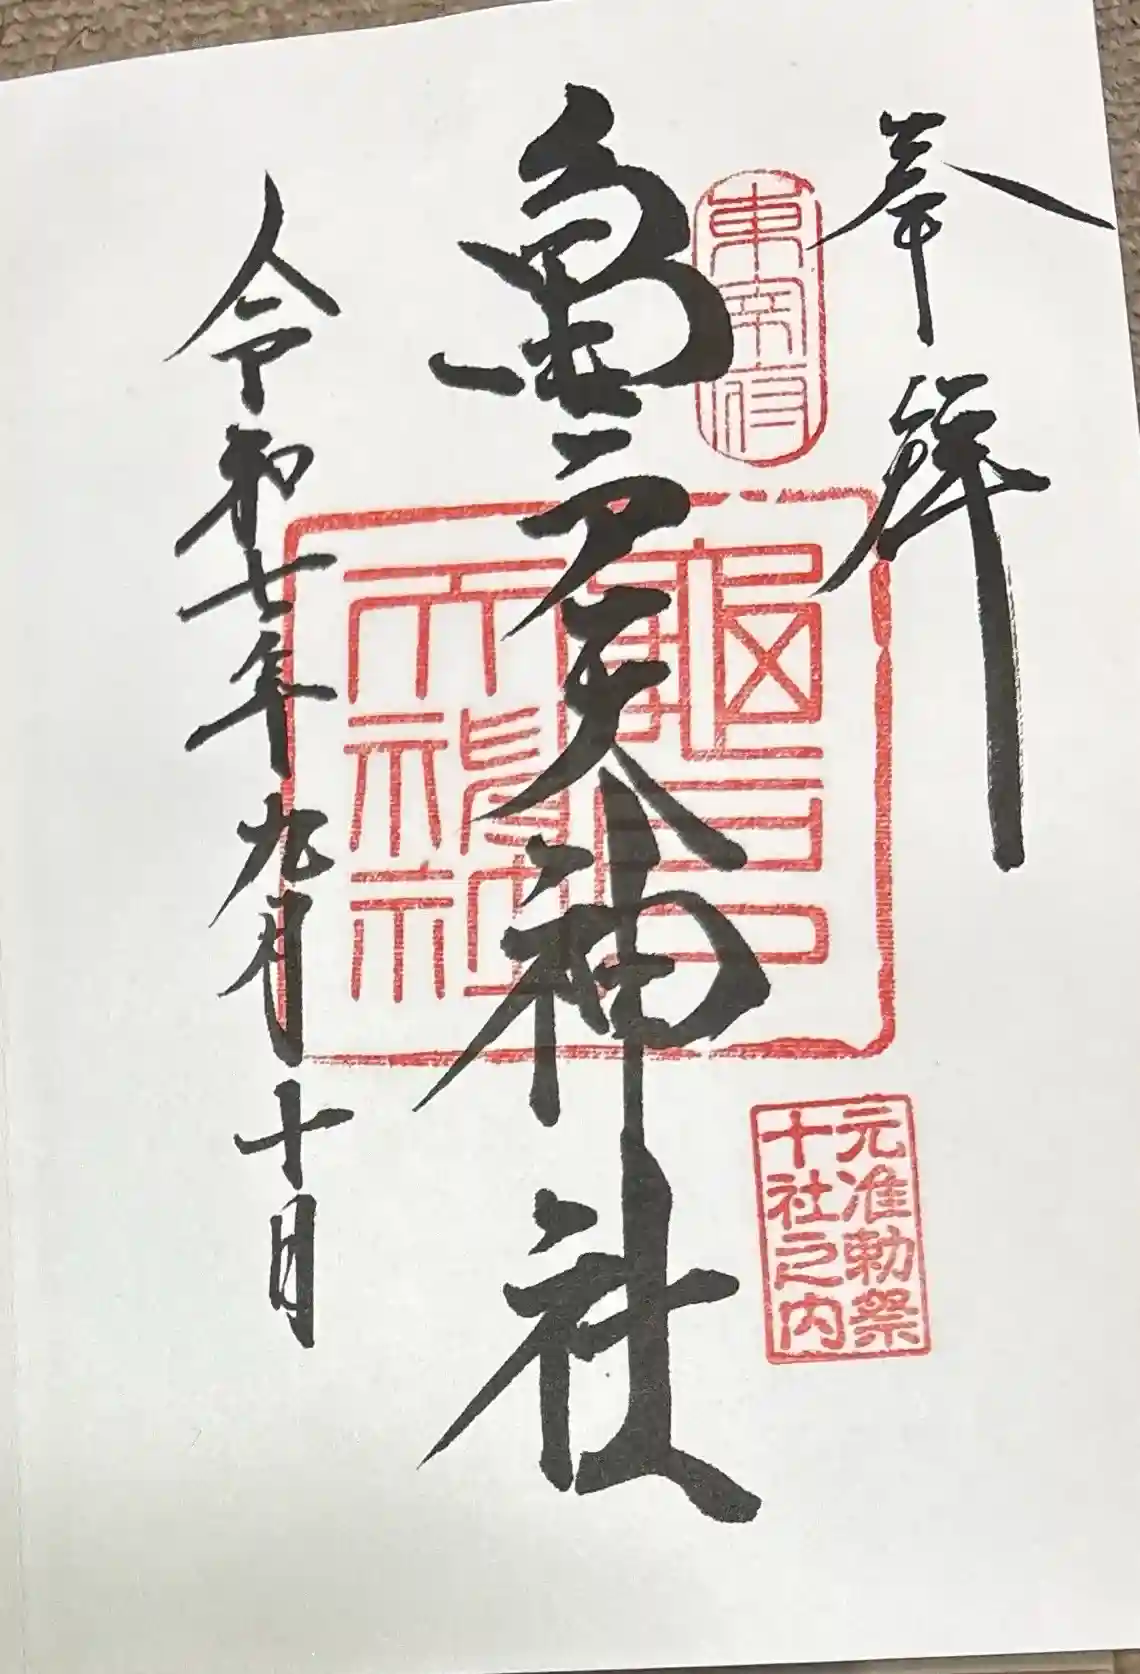 奉拝
東宰府
亀戸天神社
龜戸天神社
元准勅祭
十社之内
令和七年九月十日